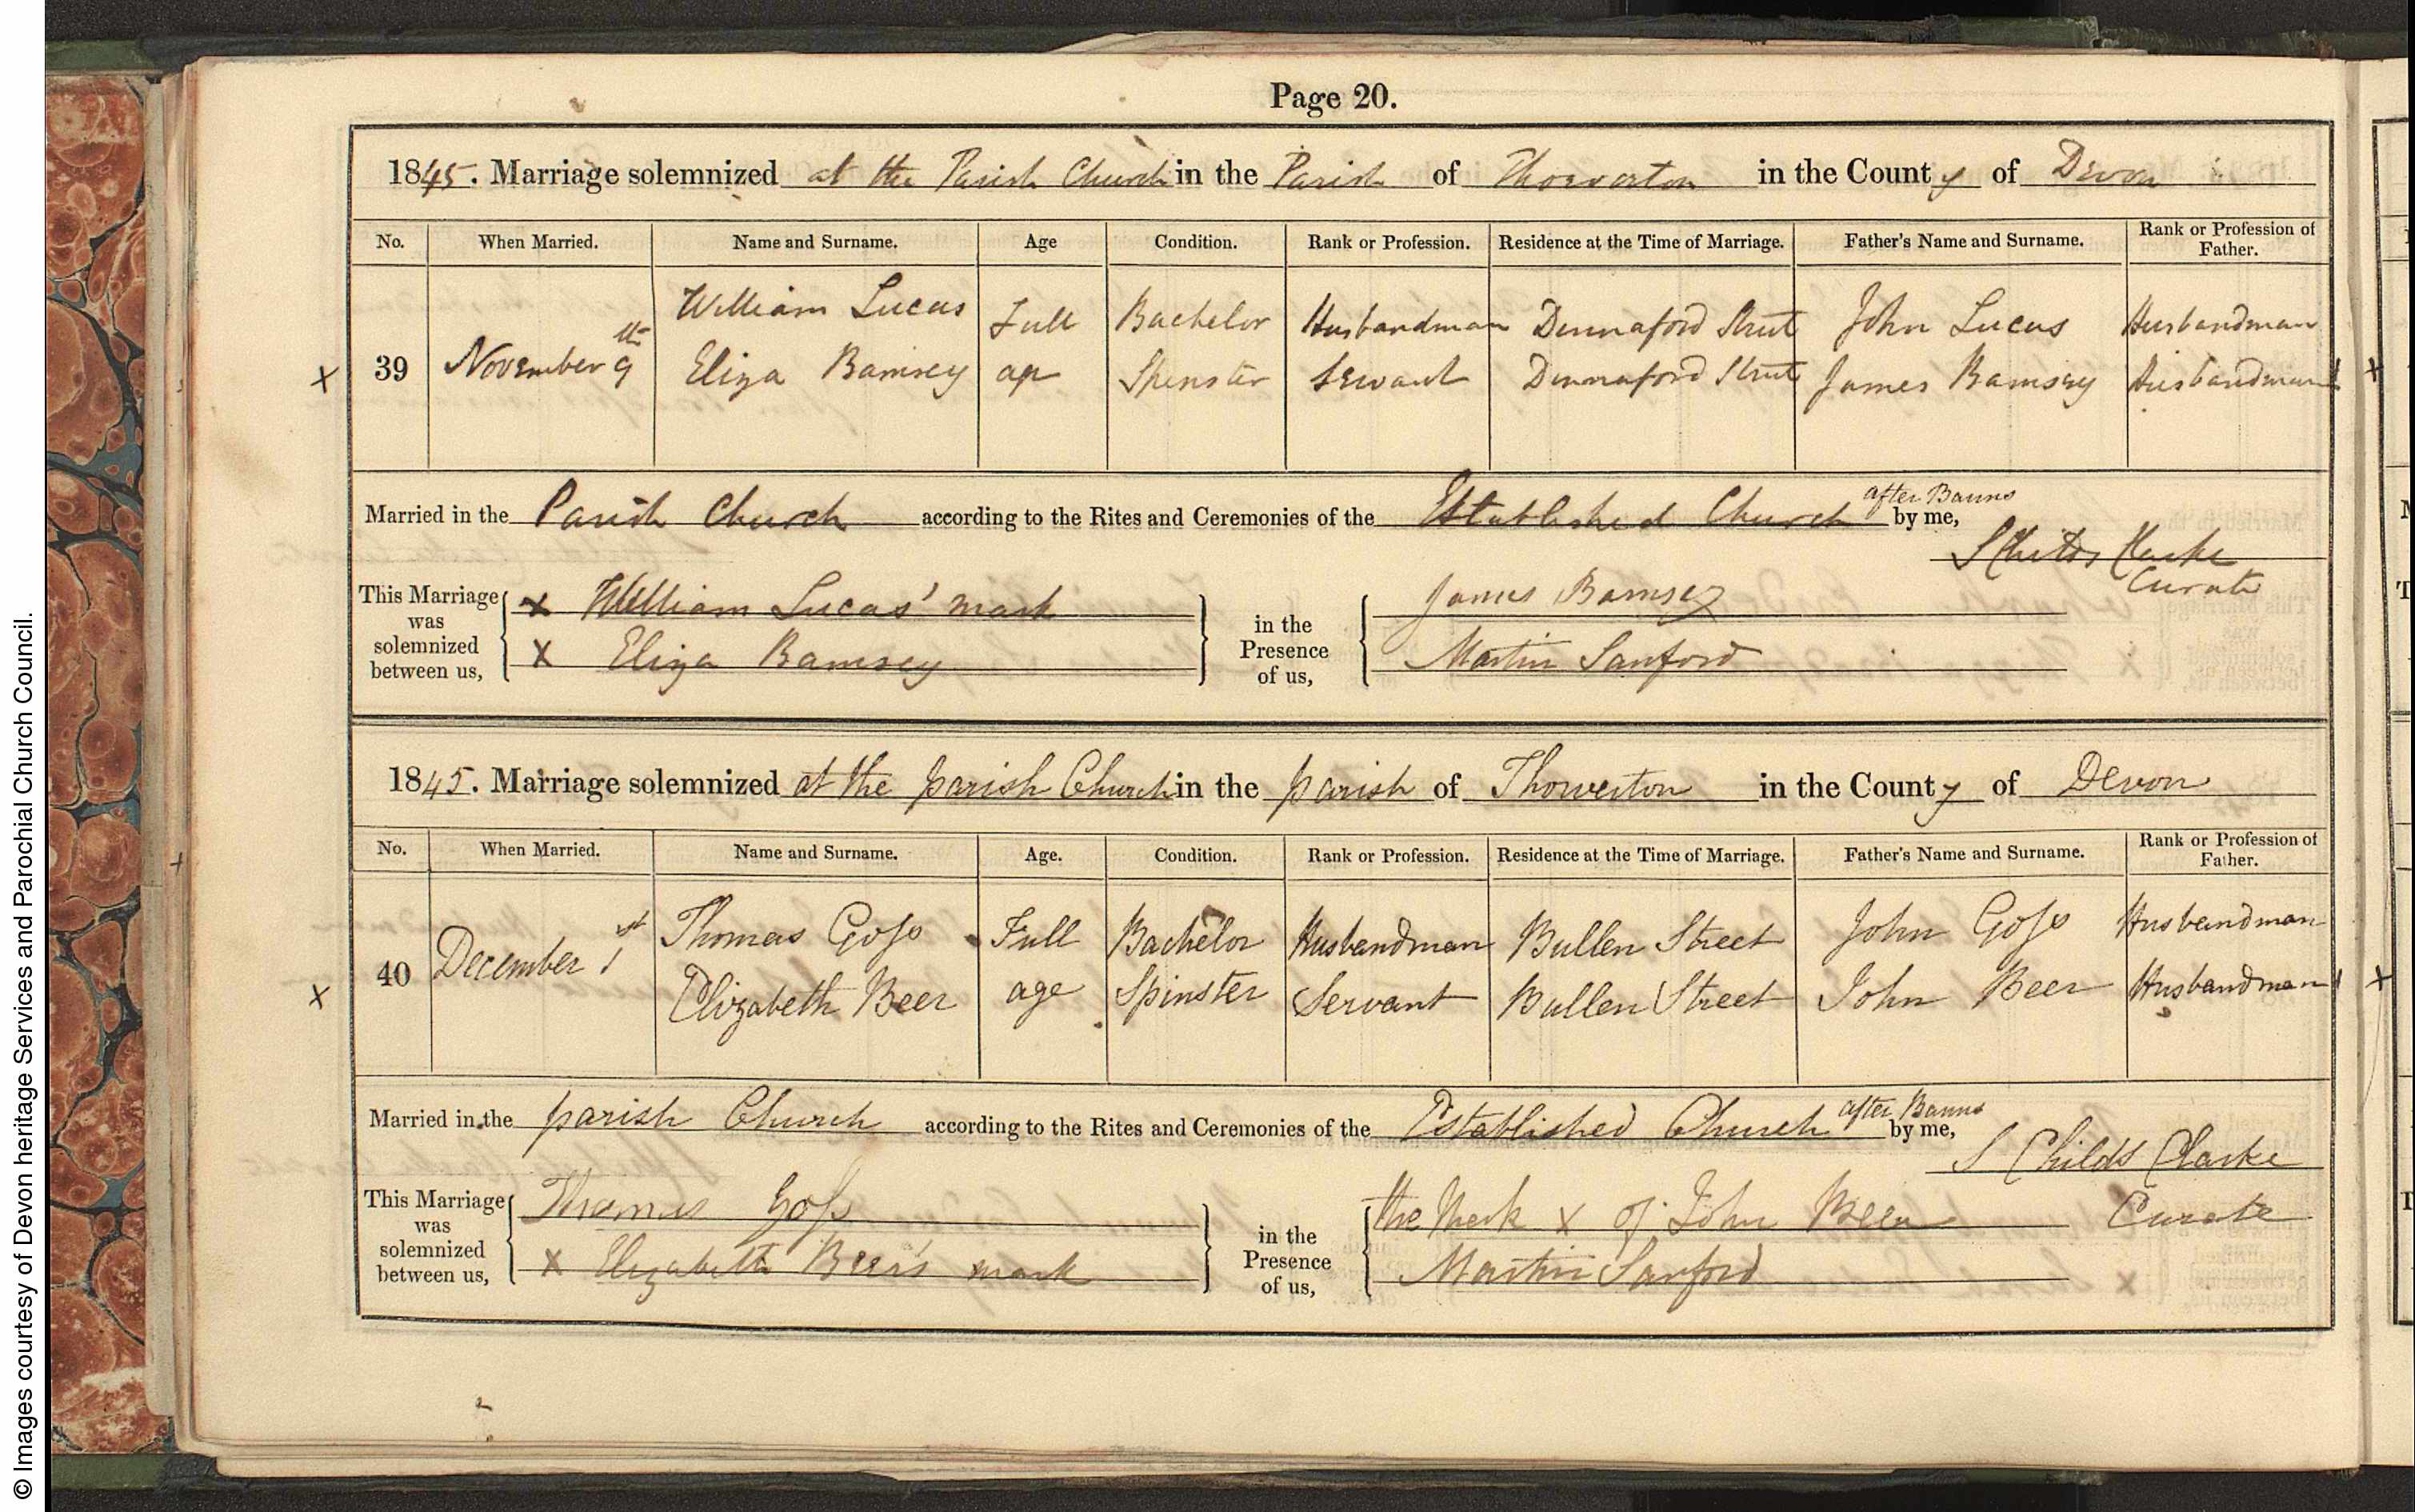 Page 20.
1845. Marriage solemnized at the Parish Church in the Parish of Thorverton in the County of Devon
No. When Married. Name and Surname. Age Condition. Rank or Profession. Residence at the Time of Marriage. Father's Name and Surname. Rank or Profession of Father.
William Lucas Full Bachelor Husbandman Dinnaford Street John Lucas Husbandman
X 39 November 9th Eliza Bamsey age Spinster Servant Dinnaford Street James Bamsey Husbandman X
Married in the Parish Church according to the Rites and Ceremonies of the Established Church after Banns by me,
S Childs Clarke
Curate
This Marriage was solemnized between us,
X William Lucas' mark
X Eliza Bamsey
in the Presence of us,
James Bamsey
Martin Sanford
1845. Marriage solemnized at the parish Church in the parish of Thorverton in the County of Devon
No. When Married. Name and Surname. Age. Condition. Rank or Profession. Residence at the Time of Marriage. Father's Name and Surname. Rank or Profession of Father.
Thomas Goss Full Bachelor Husbandman Bullen Street John Goss Husbandman
X 40 December 1st Elizabeth Beer age Spinster Servant Bullen Street John Beer Husbandman X
Married in the parish Church according to the Rites and Ceremonies of the Established Church after Banns by me,
S Childs Clarke
Curate
This Marriage was solemnized between us,
Thomas Goss
X Elizabeth Beer's mark
in the Presence of us,
the Mark X of John Beer
Martin Sanford
© Images courtesy of Devon heritage Services and Parochial Church Council.